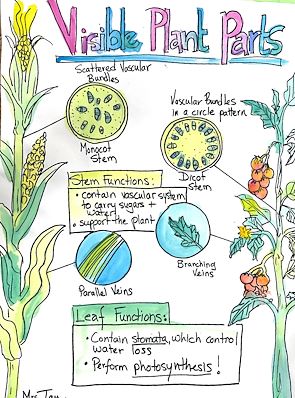 Visible Plant Parts
Scattered Vascular
Bundles
Monocot
Stem
Vascular Bundles
in a circle pattern
Dicot
Stem
Stem Functions:
• contain vascular system
to carry sugars +
water
• support the plant
Parallel Veins
Branching
Veins
Leaf Functions:
• Contain stomata, which control
water loss
• Perform photosynthesis!
Mrs.